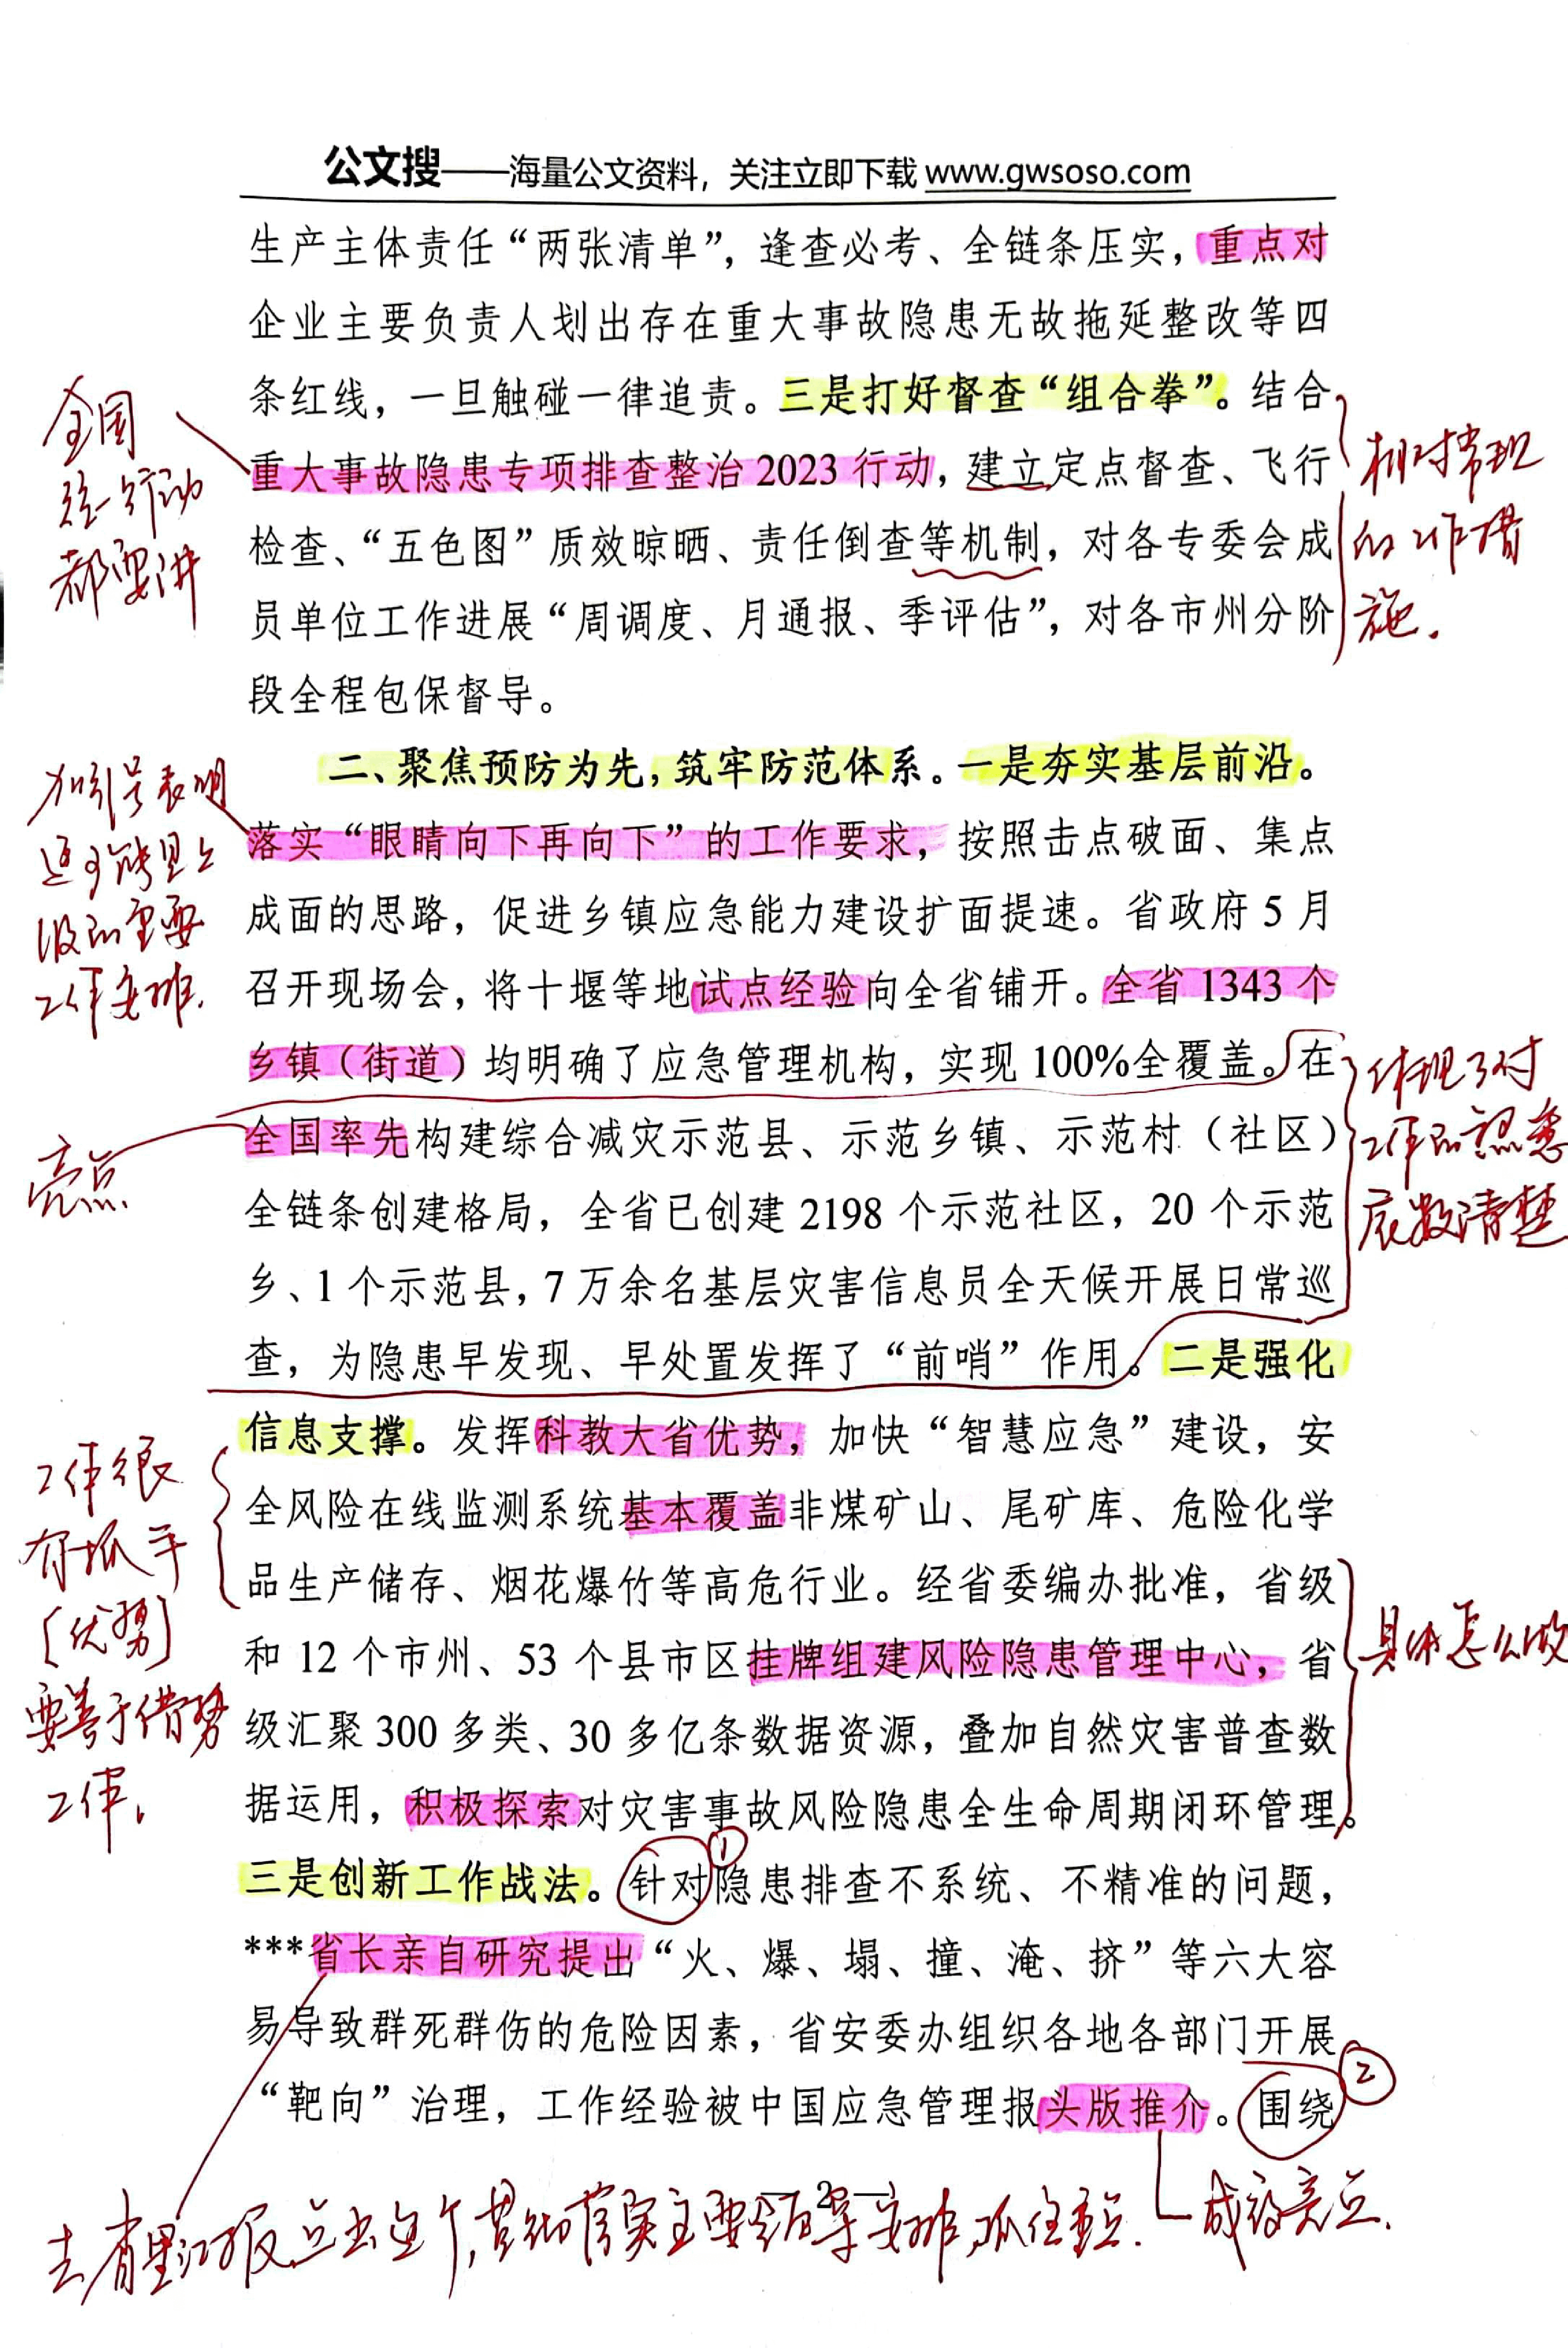 公文搜——海量公文资料，关注立即下载 www.gwsoso.com
生产主体责任“两张清单”，逢查必考、全链条压实，重点对
企业主要负责人划出存在重大事故隐患无故拖延整改等四
条红线，一旦触碰一律追责。三是打好督查“组合拳”。结合
重大事故隐患专项排查整治 2023 行动，建立定点督查、飞行
检查、“五色图”质效晾晒、责任倒查等机制，对各专委会成
员单位工作进展“周调度、月通报、季评估”，对各市州分阶
段全程包保督导。
全国
统一行动
都要讲
相对常规
的工作措
施.
二、聚焦预防为先，筑牢防范体系。一是夯实基层前沿。
落实“眼睛向下再向下”的工作要求，按照击点破面、集点
成面的思路，促进乡镇应急能力建设扩面提速。省政府 5 月
召开现场会，将十堰等地试点经验向全省铺开。全省 1343 个
乡镇（街道）均明确了应急管理机构，实现 100%全覆盖。在
全国率先构建综合减灾示范县、示范乡镇、示范村（社区）
全链条创建格局，全省已创建 2198 个示范社区，20 个示范
乡、1 个示范县，7 万余名基层灾害信息员全天候开展日常巡
查，为隐患早发现、早处置发挥了“前哨”作用。二是强化
信息支撑。发挥科教大省优势，加快“智慧应急”建设，安
全风险在线监测系统基本覆盖非煤矿山、尾矿库、危险化学
品生产储存、烟花爆竹等高危行业。经省委编办批准，省级
和 12 个市州、53 个县市区挂牌组建风险隐患管理中心，省
级汇聚 300 多类、30 多亿条数据资源，叠加自然灾害普查数
据运用，积极探索对灾害事故风险隐患全生命周期闭环管理。
三是创新工作战法。针对隐患排查不系统、不精准的问题，
***省长亲自研究提出“火、爆、塌、撞、淹、挤”等六大容
易导致群死群伤的危险因素，省安委办组织各地各部门开展
“靶向”治理，工作经验被中国应急管理报头版推介。围绕
加引号表明
这可能是上
级的重要
工作安排.
亮点
体现了对
工作的熟悉
底数清楚
工作很
有抓手
[优势]
要善于借势
工作.
具体怎么做
①
②
— 2 —
去省里汇报,点出这个,贯彻落实主要领导安排,抓住重点.
成效亮点.